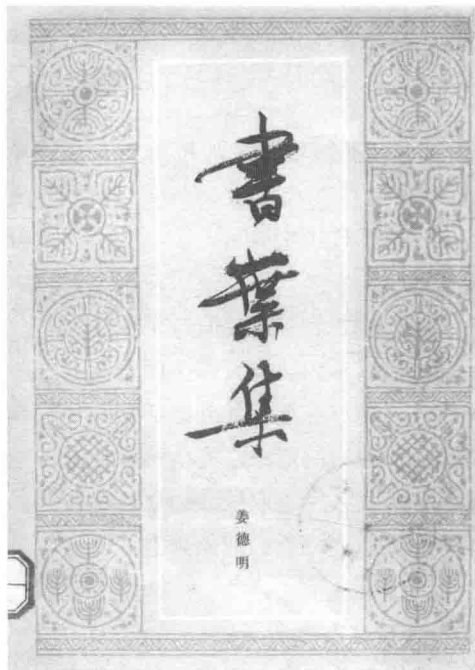 書葉集
姜德明